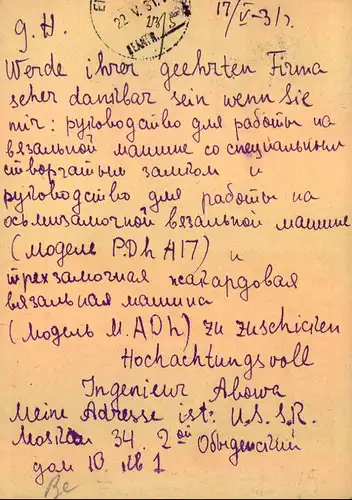 17/V-31 г.
22 V. 31
g. H.
Werde ihrer geehrten Firma
seher dankbar sein wenn Sie
mir: руководство для работы на
вязальной машине со специальным
створчатым замком и
руководство для работы на
осьмизамочной вязальной машине
(модель P.Dh A17) и
трехзамочная жакардовая
вязальная машина
(модель M.ADh) zu zuschicken
Hochachtungsvoll
Ingenieur Abowa
Meine Adresse ist: U.S.S.R.
Moskau 34. 2ой Обыденский
дом 10. кв 1